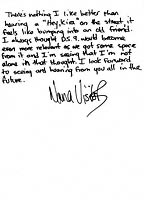 There's nothing I like better than
hearing a "Hey, Kira" on the street, it
feels like bumping into an old friend.
I always thought D.S.9. would become
even more relevant as we got some space
from it and I'm seeing that I'm not
alone in that thought. I look forward
to seeing and hearing from you all in the
future.
Nana Visitor